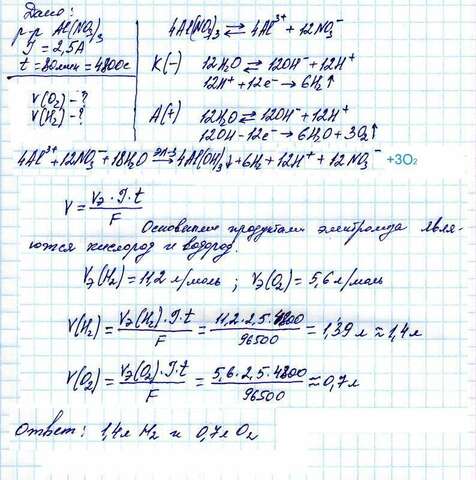 Дано:
р-р Al(NO₃)₃
I = 2,5А
t = 80мин = 4800с
V(O₂) - ?
V(H₂) - ?
4Al(NO₃)₃ ⇄ 4Al³⁺ + 12NO₃⁻
К(-) 12H₂O ⇄ 12OH⁻ + 12H⁺
12H⁺ + 12e⁻ → 6H₂↑
А(+) 12H₂O ⇄ 12OH⁻ + 12H⁺
12OH - 12e⁻ → 6H₂O + 3O₂↑
4Al³⁺ + 12NO₃⁻ + 18H₂O эл-з → 4Al(OH)₃↓ + 6H₂ + 12H⁺ + 12NO₃⁻ +3O₂
V = Vэ · I · t / F
Основными продуктами электролиза явля-
ются кислород и водород.
Vэ(H₂) = 11,2 л/моль ; Vэ(O₂) = 5,6 л/моль
V(H₂) = Vэ(H₂) · I · t / F = 11,2 · 2,5 · 4800 / 96500 = 1,39 л ≈ 1,4 л
V(O₂) = Vэ(O₂) · I · t / F = 5,6 · 2,5 · 4800 / 96500 ≈ 0,7 л
Ответ: 1,4 л H₂ и 0,7 л O₂